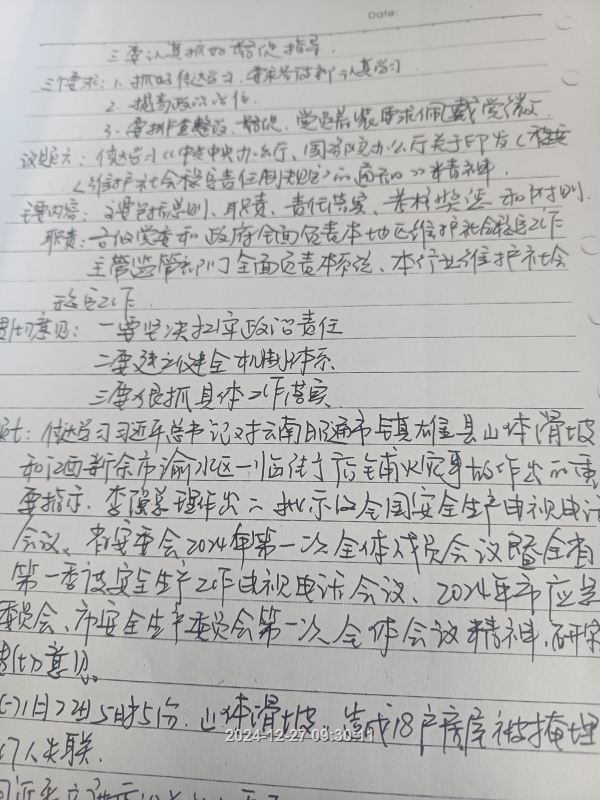 Date:
三要认真抓好督促指导.
三个要求: 1. 抓好传达学习, 要求各支部认真学习
2. 提高政治站位
3. 要排查整改, 督促, 党员着装要求佩戴党徽.
议题六: 传达学习《中共中央办公厅、国务院办公厅关于印发〈
〈维护社会稳定责任制规定〉的通知》精神.
主要内容: 主要包括总则、职责、责任落实、考核奖惩和附则.
职责: 各级党委和政府全面负责本地区维护社会稳定工作
主管监管部门全面负责本系统、本行业维护社会
稳定工作.
贯彻意见: 一要坚决扛牢政治责任
二要建立健全机制体系
三要狠抓具体工作落实
七: 传达学习习近平总书记对云南昭通市镇雄县山体滑坡
和江西新余市渝水区一临街店铺火灾事故作出的重
要指示, 李强总理作出的批示及全国安全生产电视电话
会议、省安委会2024年第一次全体成员会议暨全省
第一季度安全生产工作电视电话会议、2024年市应急
委员会、市安全生产委员会第一次全体会议精神, 研究
贯彻意见。
(一)1月22日5时51分, 山体滑坡, 造成18户房屋被掩埋
47人失联.
2024-12-27 09:30:11